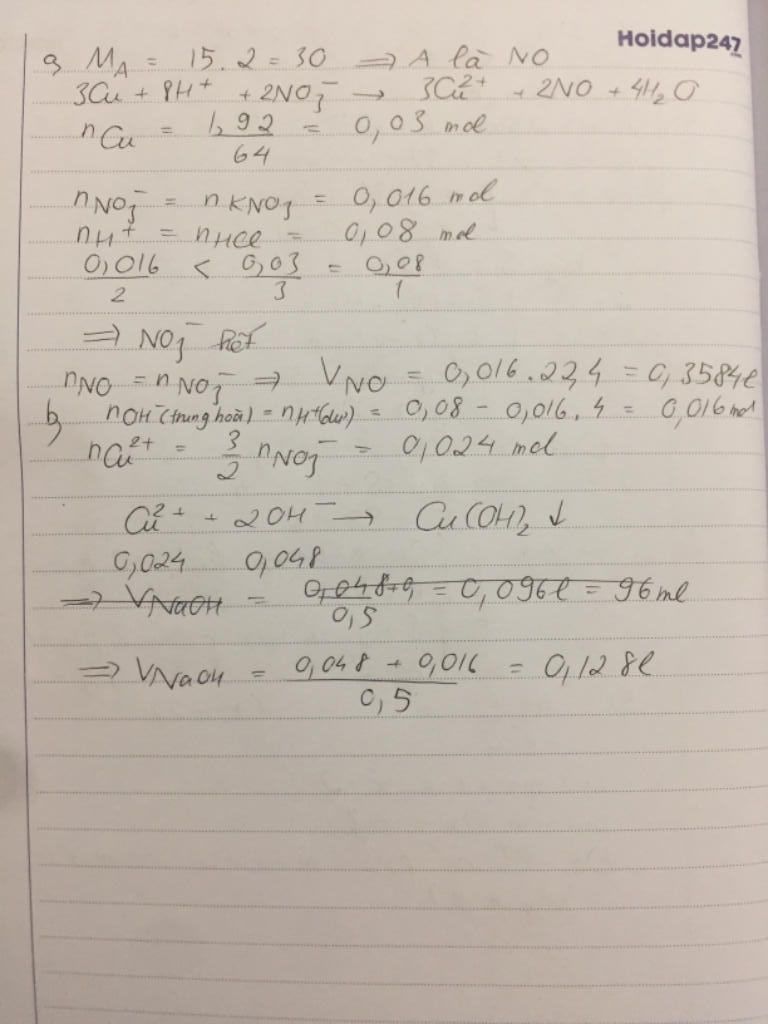 Hoidap247
.com
a, M_A = 15.2 = 30 ⟹ A là NO
3Cu + 8H⁺ + 2NO₃⁻ → 3Cu²⁺ + 2NO + 4H₂O
n_Cu = 1,92/64 = 0,03 mol
n_NO₃⁻ = n_KNO₃ = 0,016 mol
n_H⁺ = n_HCl = 0,08 mol
0,016/2 < 0,03/3 = 0,08/1
⟹ NO₃⁻ hết
n_NO = n_NO₃⁻ ⟹ V_NO = 0,016.22,4 = 0,3584l
b, n_OH⁻(trung hoà) = n_H⁺(dư) = 0,08 - 0,016.4 = 0,016 mol
n_Cu²⁺ = 3/2 n_NO₃⁻ = 0,024 mol
Cu²⁺ + 2OH⁻ → Cu(OH)₂ ↓
0,024 0,048
⟹ V_NaOH = 0,048+0,/0,5 = 0,096l = 96ml
⟹ V_NaOH = 0,048 + 0,016/0,5 = 0,128l